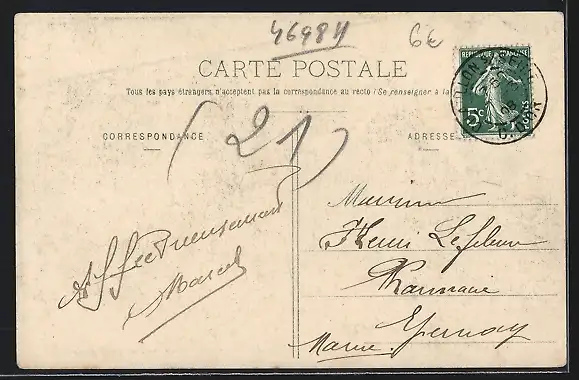 46984
6€
CARTE POSTALE
Tous les pays étrangers n'acceptent pas la correspondance au recto (Se renseigner à la
CORRESPONDANCE
ADRESSE
(21)
RÉPUBLIQUE FRANÇAISE
5c POSTES
08
Affectueusement
Marcel
Monsieur
Henri Lefebvre
Pharmacie
Epernay
Marne